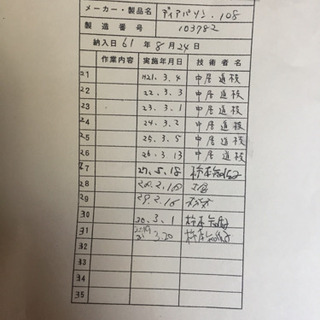 メーカー・製品名 ディアパソン・108
製造番号 103782
納入日 61年 8月 24日
作業内容 実施年月日 技術者名
21 H21.3.4 中居道枝
22 22.3.3 中居道枝
23 23.3.1 中居道枝
24 24.3.2 中居道枝
25 25.3.5 中居道枝
26 26.3.13 中居道枝
27 27.5.18
28
29
30 30.3.1
31 3.20
32
33
34
35